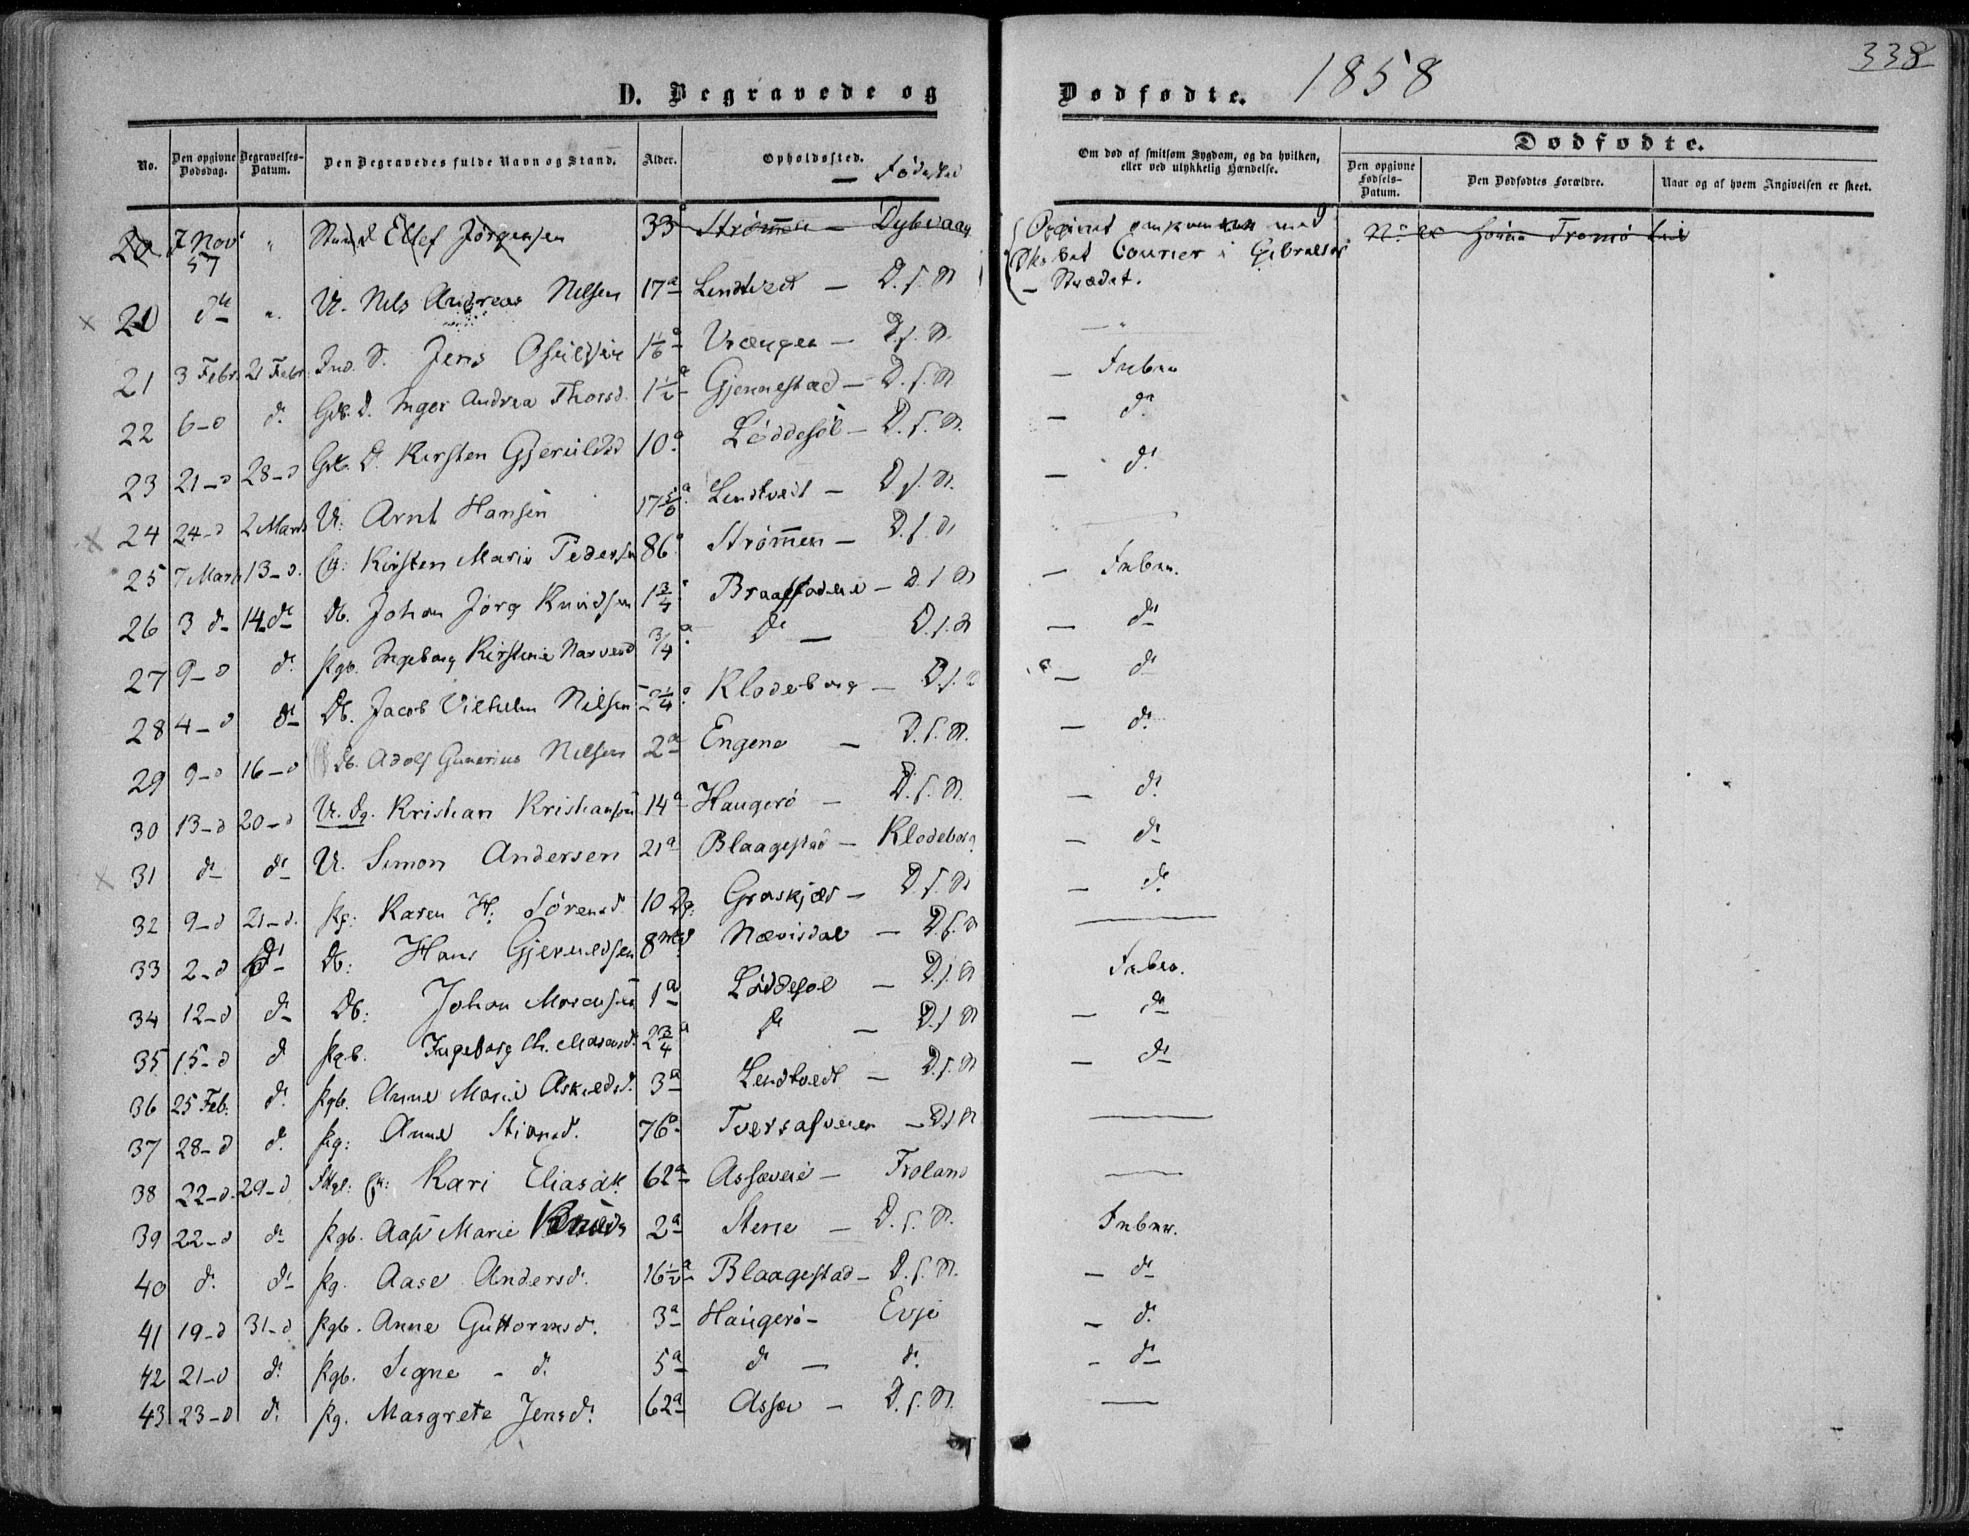 338
D. Begravede og Dødfødte. 1858
No.
Den opgivne Dødsdag.
Begravelses-Datum.
Den Begravedes fulde Navn og Stand.
Alder.
Opholdssted. — Fødested
Om død af smitsom Sygdom, og da hvilken, eller ved ulykkelig Hændelse.
Dødfødte.
Den opgivne Fødsels-Datum.
Den Dødfødtes Forældre.
Naar og af hvem Angivelsen er skeet.
20 7 Nov 57 " Ellef Jørgensen 33 a Strømmen — Dybvaag
Opgivet omkommen med Skibet Courier i Gibraltar Strædet.
20 do " U. Nils Andreas Nilsen 17 a Lendtvedt — D. s. St. — "
21 3 Febr. 21 Febr. Ind. S. Jens Osuldsen 1 1/6 a Vrængen — D. s. St. — Feber
22 6 - d d. Gdb. D. Inger Andrea Thorsd. 1 1/2 a Gjennestad — D. s. St. — do
23 21 - d 28 - d Gdb. D. Kirsten Gjeruldsd 10 a Løddesøl — D. s. St. — do
24 24 - d 2 Marts U. Arnt Hansen 17 5/6 a Lendtvedt — D. s. St. —
25 7 Marts 13 - d. E: Kirsten Marie Pedersen 86 a Strømmen — D. s. St. — Feber.
26 3 d 14 d Db. Johan Jørg Knudsen 1 3/4 a D. s. St. — do
27 9 - d d. Pgb. Ingeborg Kirstine Narvesd 3/4 a do — D. s. St. — do
28 4 - d d Db. Jacob Vilhelm Nilsen 2 1/4 a Klodeborg — D. s. St. — do
29 9 - d 16 - d Db. Adolf Gunerius Nilsen 2 a Engene — D. s. St. — do
30 13 - d 20 - d U. Dg. Kristian Kristiansen 14 a Haugerø — D. s. St. — do
31 d d U. Simon Andersen 21 a Blaagestad — Klodeborg — do
32 9 - d 21 - d. Pg: Karen H: Sørensd. 10 Dg: Graskjær — D. s. St. —
33 2 - d d Db: Hans Gjeruldsen 8 Md Nævisdal — D. s. St. Feber.
34 12 - d d Db: Johan Mosesen 1 a Løddesøl — D. s. St. — do
35 15 - d d Pgb. Ingeborg 2 3/4 a do — D. s. St. — do
36 25 Feb. d. Pgb. Anne Marie Askildsd. 3 a Lendtvedt — D. s. St. —
37 28 - d d. Pg: Anne Stiansd. 76 a — D. s. St. —
38 22 - d. 29 - d E: Kari Eliasdtr 62 a Assæveie — Froland —
39 22 - d d Pgb. Aase Marie Knudsd 2 a Stene — D. s. St. Feber.
40 d. d Pg. Aase Andersd. 16 1/2 a Blaagestad — D. s. St. — do
41 19 - d 31 - d Pgb. Anne Guttormsd. 3 a Haugerø — Evje — do
42 21 - d d. Pgb. Signe - d. 5 a do — d. — do
43 23 - d d. Pg. Margrete Jensd. 62 a Assæv — D. s. St. —